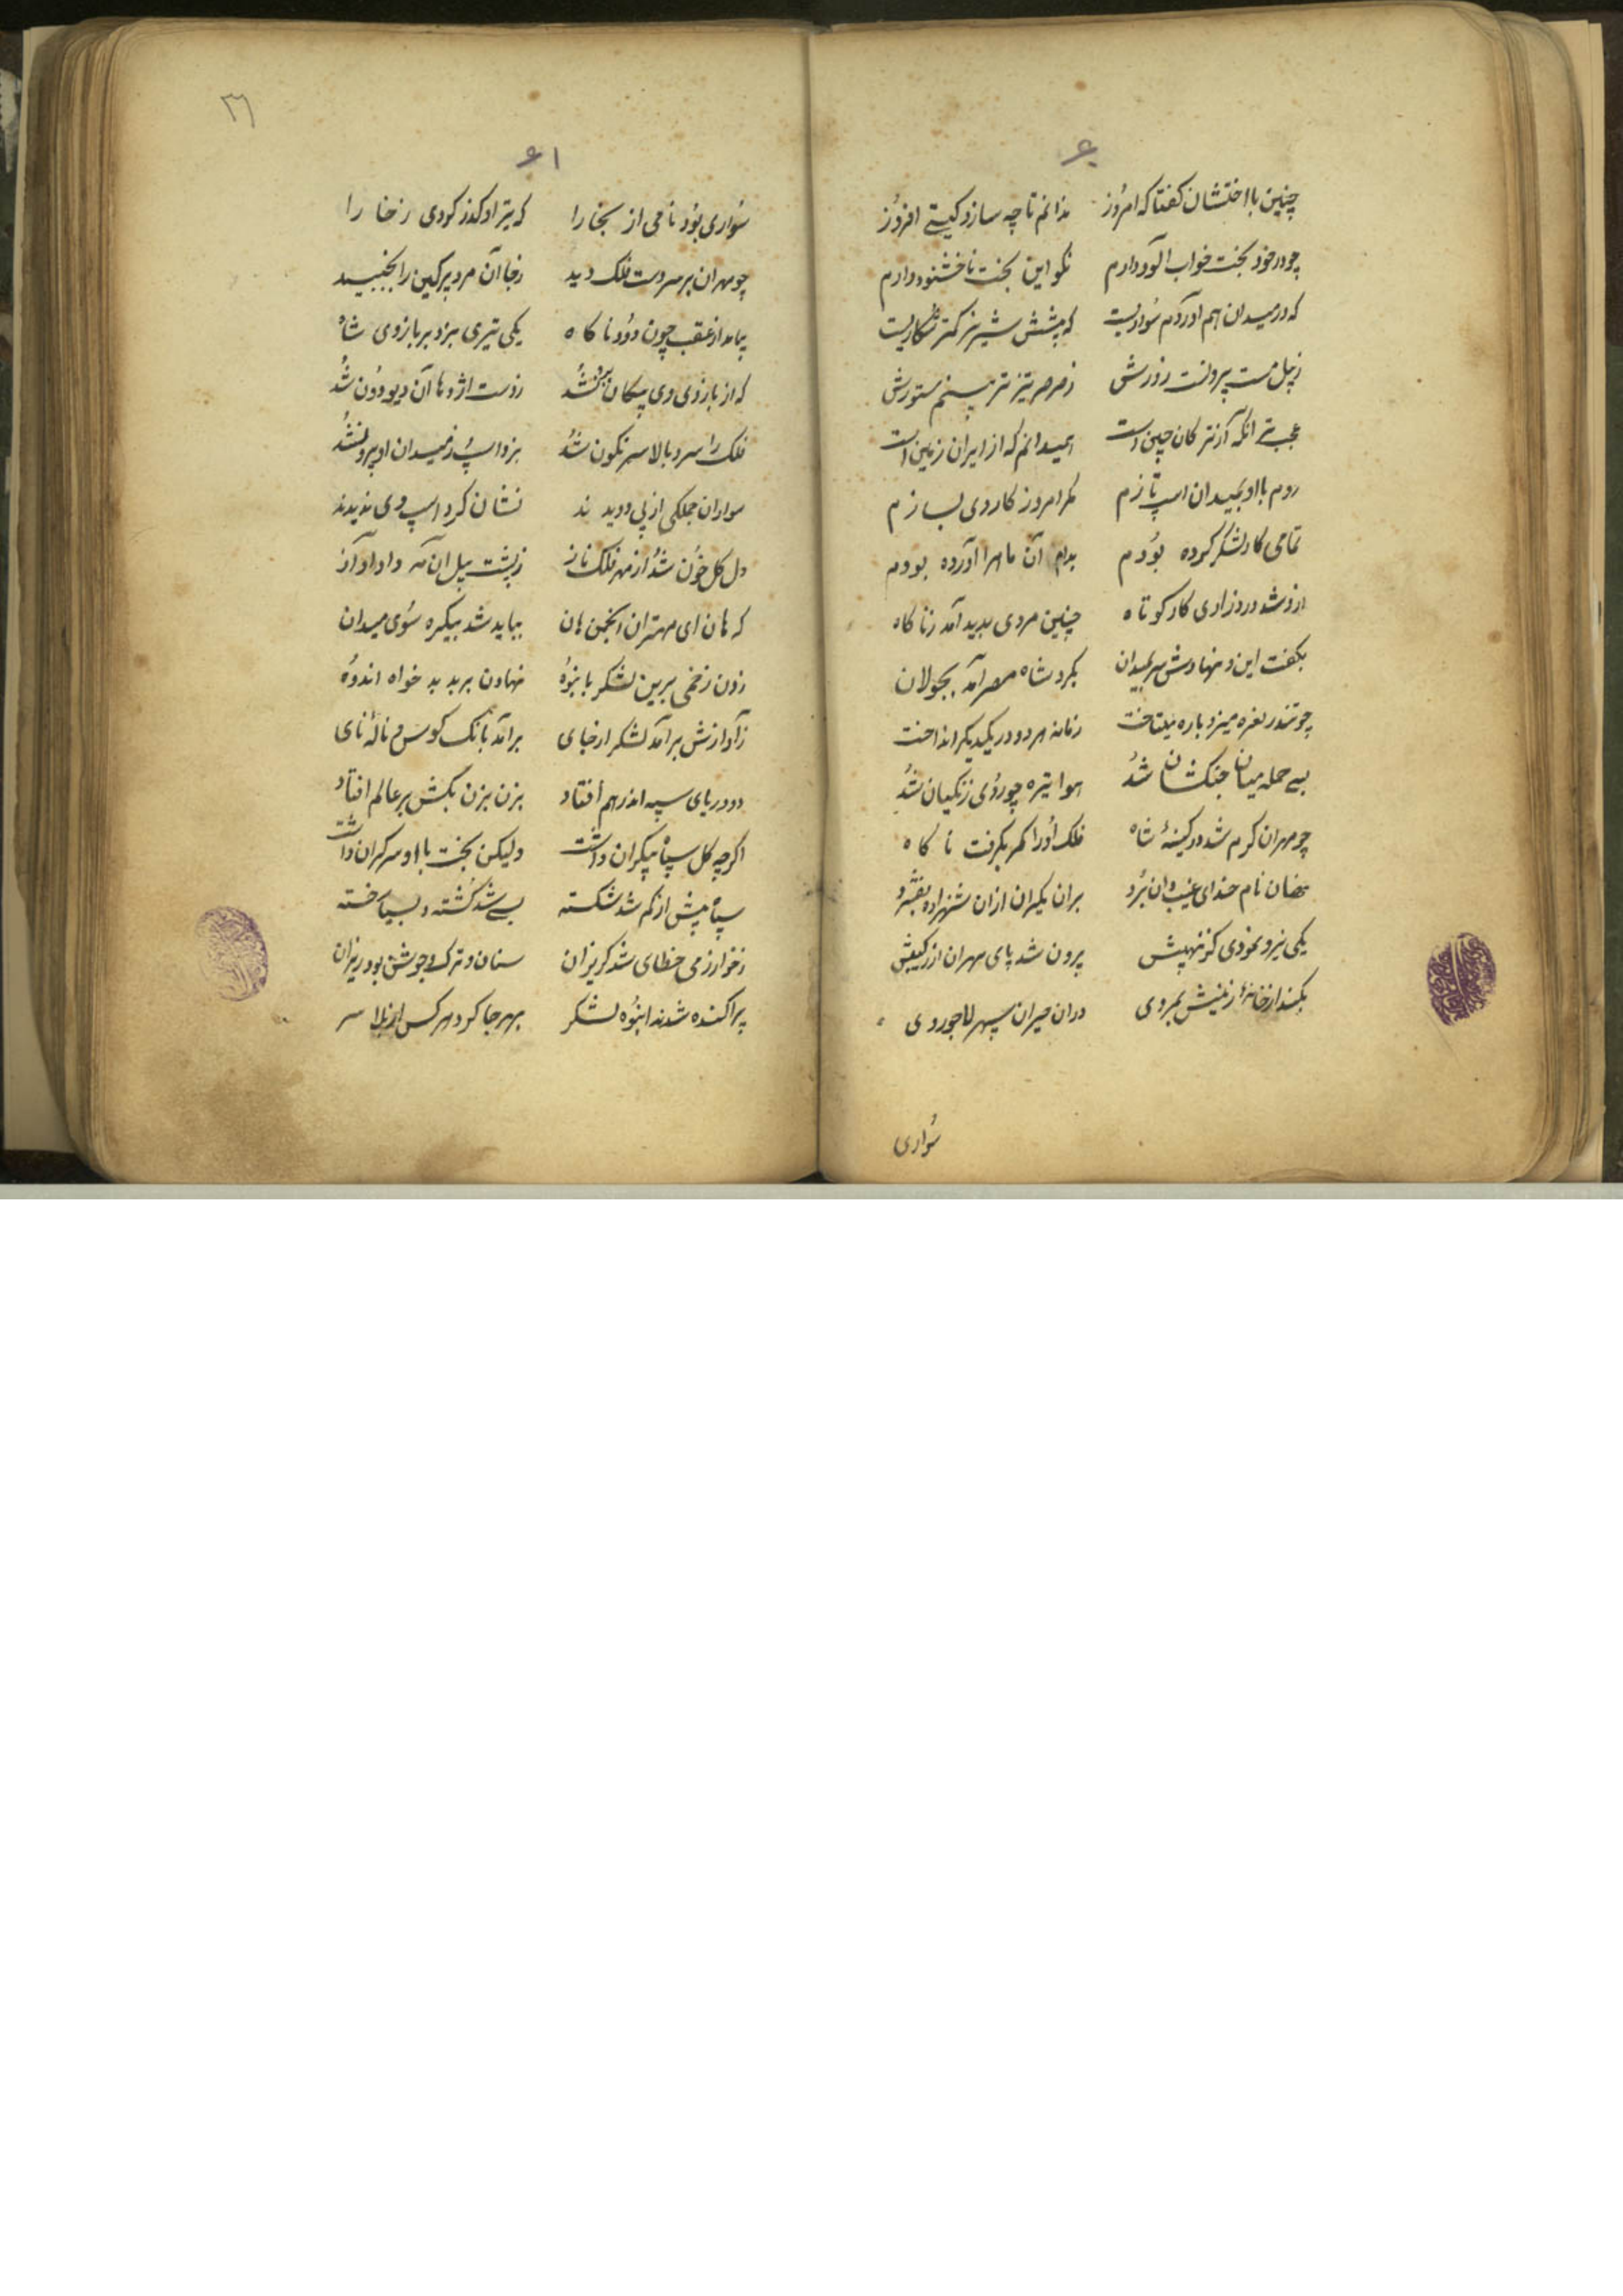 ۶۰
چنین با اختشان کفتا که امروز ندانم تا چه سازد کیتی افروز
چو در خود بخت خواب آلود دارم نکو این بخت ناخشنود دارم
که در میدان هم آوردم سواریست که پیشش شیر نر کمتر شکاریست
ز پیل مست بیرونست زورش ز صرصر تیزتر بینم ستورش
عجب تر آنکه آن ترکان چین است همیدانم که از ایران زمین است
روم با او بمیدان اسپ تازم مکر امروز کار وی بسازم
تمامی کار لشکر کرده بودم بدام آن ماه را آورده بودم
ازو شد روز زاری کار کوتاه چنین مردی پدید آمد ز ناکاه
بکفت این و نهادش سر بمیدان بکرد شاه مصر آمد بجولان
چو تندر نعره میزد باره میتاخت زمانه هر دو در یکدیکر انداخت
بسی حمله میان جنکشان شد هوا تیره چو روی زنکیان شد
چو مهران کرم شد در کینهٔ شاه فلک او را کمر بکرفت ناکاه
نام خدای غیب دان برد بران یکران ازان شهزاده بفشرد
یکی نیرو نمودی کز نهیبش برون شد پای مهران از رکیبش
بکند از خانهٔ زینش بمردی دران حیران سپهر لاجوردی
سواری
۳۱
۶۱
سواری بود نامی از بخارا که تیر او کذر کردی ز خارا
چو مهران بر سر دست فلک دید ز جا آن مرد پر کین را بجنبید
بیامد از عقب چون دود ناکاه یکی تیری بزد بر بازوی شاه
که از بازوی وی پیکان برون شد ز دست اژدها آن دیو دون شد
فلک را سرو بالا سرنکون شد بزد اسپ ز میدان او برون شد
سواران جملکی از پی دویدند نشان کرد اسپ وی ندیدند
دل کل خون شد از مهر فلک ناز ز پشت پیل آن مه داد آواز
که هان ای مهتران انجمن هان بباید شد بیکره سوی میدان
زدن زخمی برین لشکر بانبوه نهادن بر بد خواه اندوه
ز آوازش برآمد لشکر از جای برآمد بانک کوس و نالهٔ نای
دو دریای سپه اندر هم افتاد بزن بزن بکش بر عالم افتاد
اکرچه کل سپاه بیکران داشت ولیکن بخت با او سرکران داشت
سپاه بیش از کم شد شکسته بسی شد کشته و بسیار خسته
ز خوارزمی خطای شد کریزان سنان و ترک و جوشن بود ریزان
پراکنده شدند انبوه لشکر بهر جا کرد هر کس